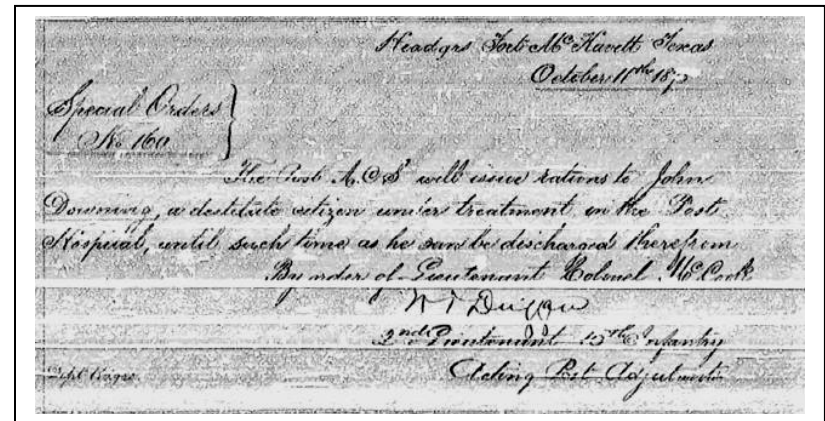 Headqrs Fort McKavett Texas
October 11th 187
Special Orders
No 160
The Post A.C.S. will issue rations to John
Downing, a destitute citizen under treatment in the Post
Hospital, until such time as he can be discharged therefrom
By order of Lieutenant Colonel McCook
2nd Lieutenant Infantry
Acting Post Adjutant